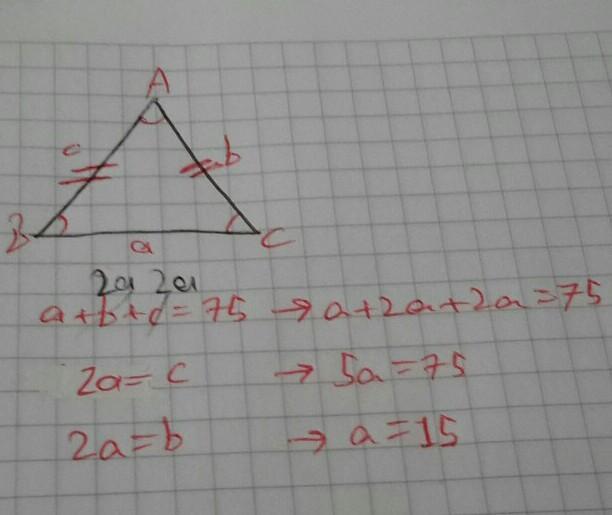 A
c b
B a C
2a 2a
a+b+c=75 → a+2a+2a=75
2a=c → 5a=75
2a=b → a=15